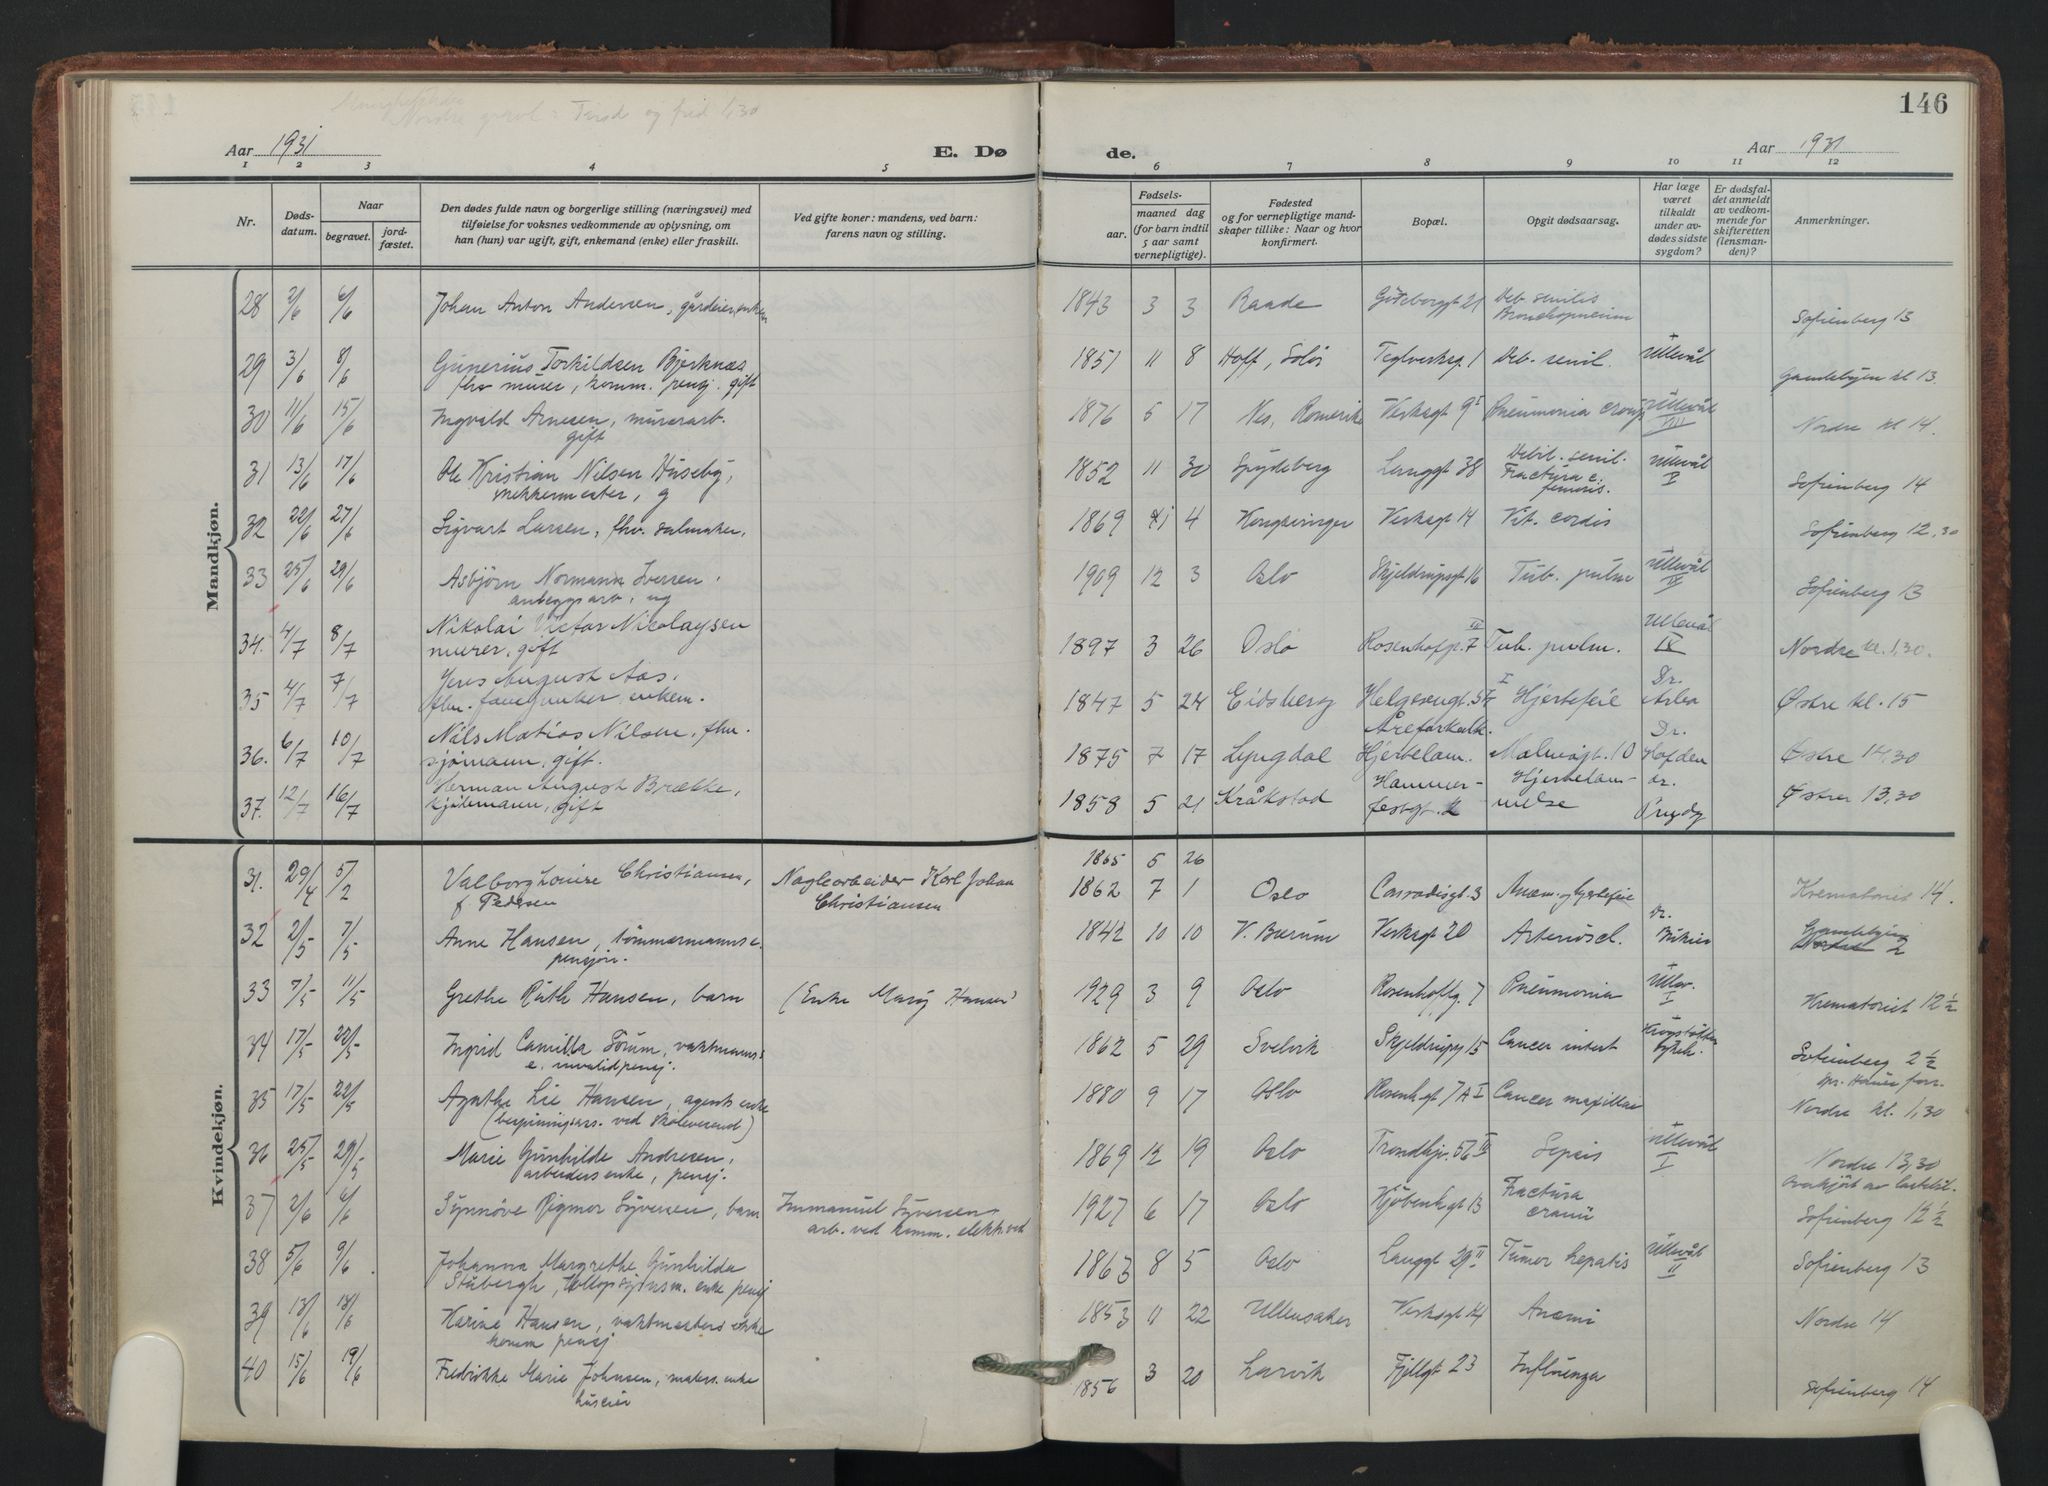 146
Nordre
Aar 1931
E. Dø
de.
Aar 1931
1 2 3 4 5 6 7 8 9 10 11 12
Nr.
Døds-
datum.
Naar
begravet.
jord-
fæstet.
Den dødes fulde navn og borgerlige stilling (næringsvei) med
tilføielse for voksnes vedkommende av oplysning, om
han (hun) var ugift, gift, enkemand (enke) eller fraskilt.
Ved gifte koner: mandens, ved barn:
farens navn og stilling.
Fødsels-
aar.
maaned dag
(for barn indtil
5 aar samt
vernepligtige).
Fødested
og for vernepligtige mand-
skaper tillike: Naar og hvor
konfirmert.
Bopæl.
Opgit dødsaarsag.
Har læge
været
tilkaldt
under av-
dødes sidste
sygdom?
Er dødsfal-
det anmeldt
av vedkom-
mende for
skifteretten
(lensman-
den)?
Anmerkninger.
Mandkjøn.
28 2/6 6/6 Johan Anton Andersen, gårdeier, enkem 1843 3 3 Raade Göteborggt 21 Deb. senilis
Bronchopneumoni
Sofienberg 13
29 3/6 8/6 Gunerius Torkildsen Bjerknæs 1851 11 8 Hoff, Solør Teglverksg. 1 Deb. senil. Ullevål
fhv murer, komm. pensj. gift Gamlebyen kl 13.
30 11/6 15/6 Ingvald Arnesen, murerarb. 1876 5 17 Nes, Romerike Verksgt 9 I Pneumonia croup Ullevål VIII Nordre kl 14.
gift
31 13/6 17/6 Ole Kristian Nilsen Huseby, 1852 11 30 Spydeberg Langgt 38 Debil. senil. Ullevål V
snekkermester, g Fractura c. femoris. Sofienberg 14
32 22/6 27/6 Sigvart Larsen, fhv. salmaker, 1869 4 Kongsvinger Verksgt 14 Vit. cordis Sofienberg 12,30
33 25/6 29/6 Asbjörn Normann Iversen, 1909 12 3 Oslo Skjeldrupsgt 16 Tub. pulm Ullevål IV Sofienberg 13
anleggsarb, ug
34. 4/7 8/7 Nikolai Victor Nicolaysen 1897 3 26 Oslo Rosenhofgt. 7 Tub. pulm. Ullevål IX Nordre kl. 1,30.
murer, gift
35 4/7 7/7 Jens August Aas, 1847 5 24 Eidsberg Helgesensgt. Hjertefeil Dr. Østre kl. 15
fhv. enkem.
36. 6/7 10/7 Nils Matias Nilsen, fhv. Åreforkalk.
sjømann, gift. 1875 7 17 Lyngdal Hjertelam. Malmøgt. 10 Dr. Hofden Østre 14,30
37. 12/7 16/7 Herman August Brække, 1858 5 21 Kråkstad Hammer- Hjertelam- dr.
gift festgt. melse Østre 13,30
Kvindekjøn.
1865 5 26
31. 29/4 5/2 Valborg Louise Christiansen, Naglearbeider Karl Johan 1862 7 1 Oslo Conradisgt. 3 Anæm. og hjertefeil Krematoriet 14.
f. Pedersen Christiansen
32 2/5 7/5 Anne Hansen, tömmermanns e. 1842 10 10 V. Bærum Verksgt 20 Arteriöscl. Dr. Gamlebyen
pensjon. Nordre 2
33 7/5 11/5 Grethe Ruth Hansen, barn (Enke Mary Hansen) 1929 3 9 Oslo Rosenhoffg. 7 Pneumonia Ullev. I Krematoriet 12 1/2
34 17/5 22/5 Ingrid Camilla Sörum, vaktmanns 1862 5 29 Svelvik Skjeldrupsg 15 Cancer intest Krogstötten sykeh.
e. invalidpensj. Sofienberg 2 1/2
35 17/5 22/5 Agathe Lie Hansen, agents enke 1880 9 17 Oslo Rosenh.gt 7 A I Cancer maxillae Nordre kl. 1,30
36 25/5 29/5 Marie Gunhilde Andresen, 1869 12 19 Oslo Trondhjv. 56 III Sepsis Ullevål I
arbeiders enke, pensj. Nordre 13,30
Overkjört av lastebil.
37 2/6 6/6 Synnöve Rigmor Syversen, barn Immanuel Syversen 1927 6 17 Oslo Kjöbenh.gt 13 Fractura
arb. ved komm. elektr. ved cranii Sofienberg 12 1/2
38 5/6 9/6 Johanna Margrethe Gunhilda 1863 8 5 Oslo Langgt 29 II Tumor hepatis Ullevål II Sofienberg 13
Stubergh, enke pensj
39 13/6 18/6 Karine Hansen, vaktmesters enke 1853 11 22 Ullensaker Verksgt 14 Anæmi Nordre 14
komm pensj
40 15/6 19/6 Fredrikke Marie Johnsen, malers enke 1856 3 20 Larvik Fjellgt 23 Influenza Sofienberg 14
huseier